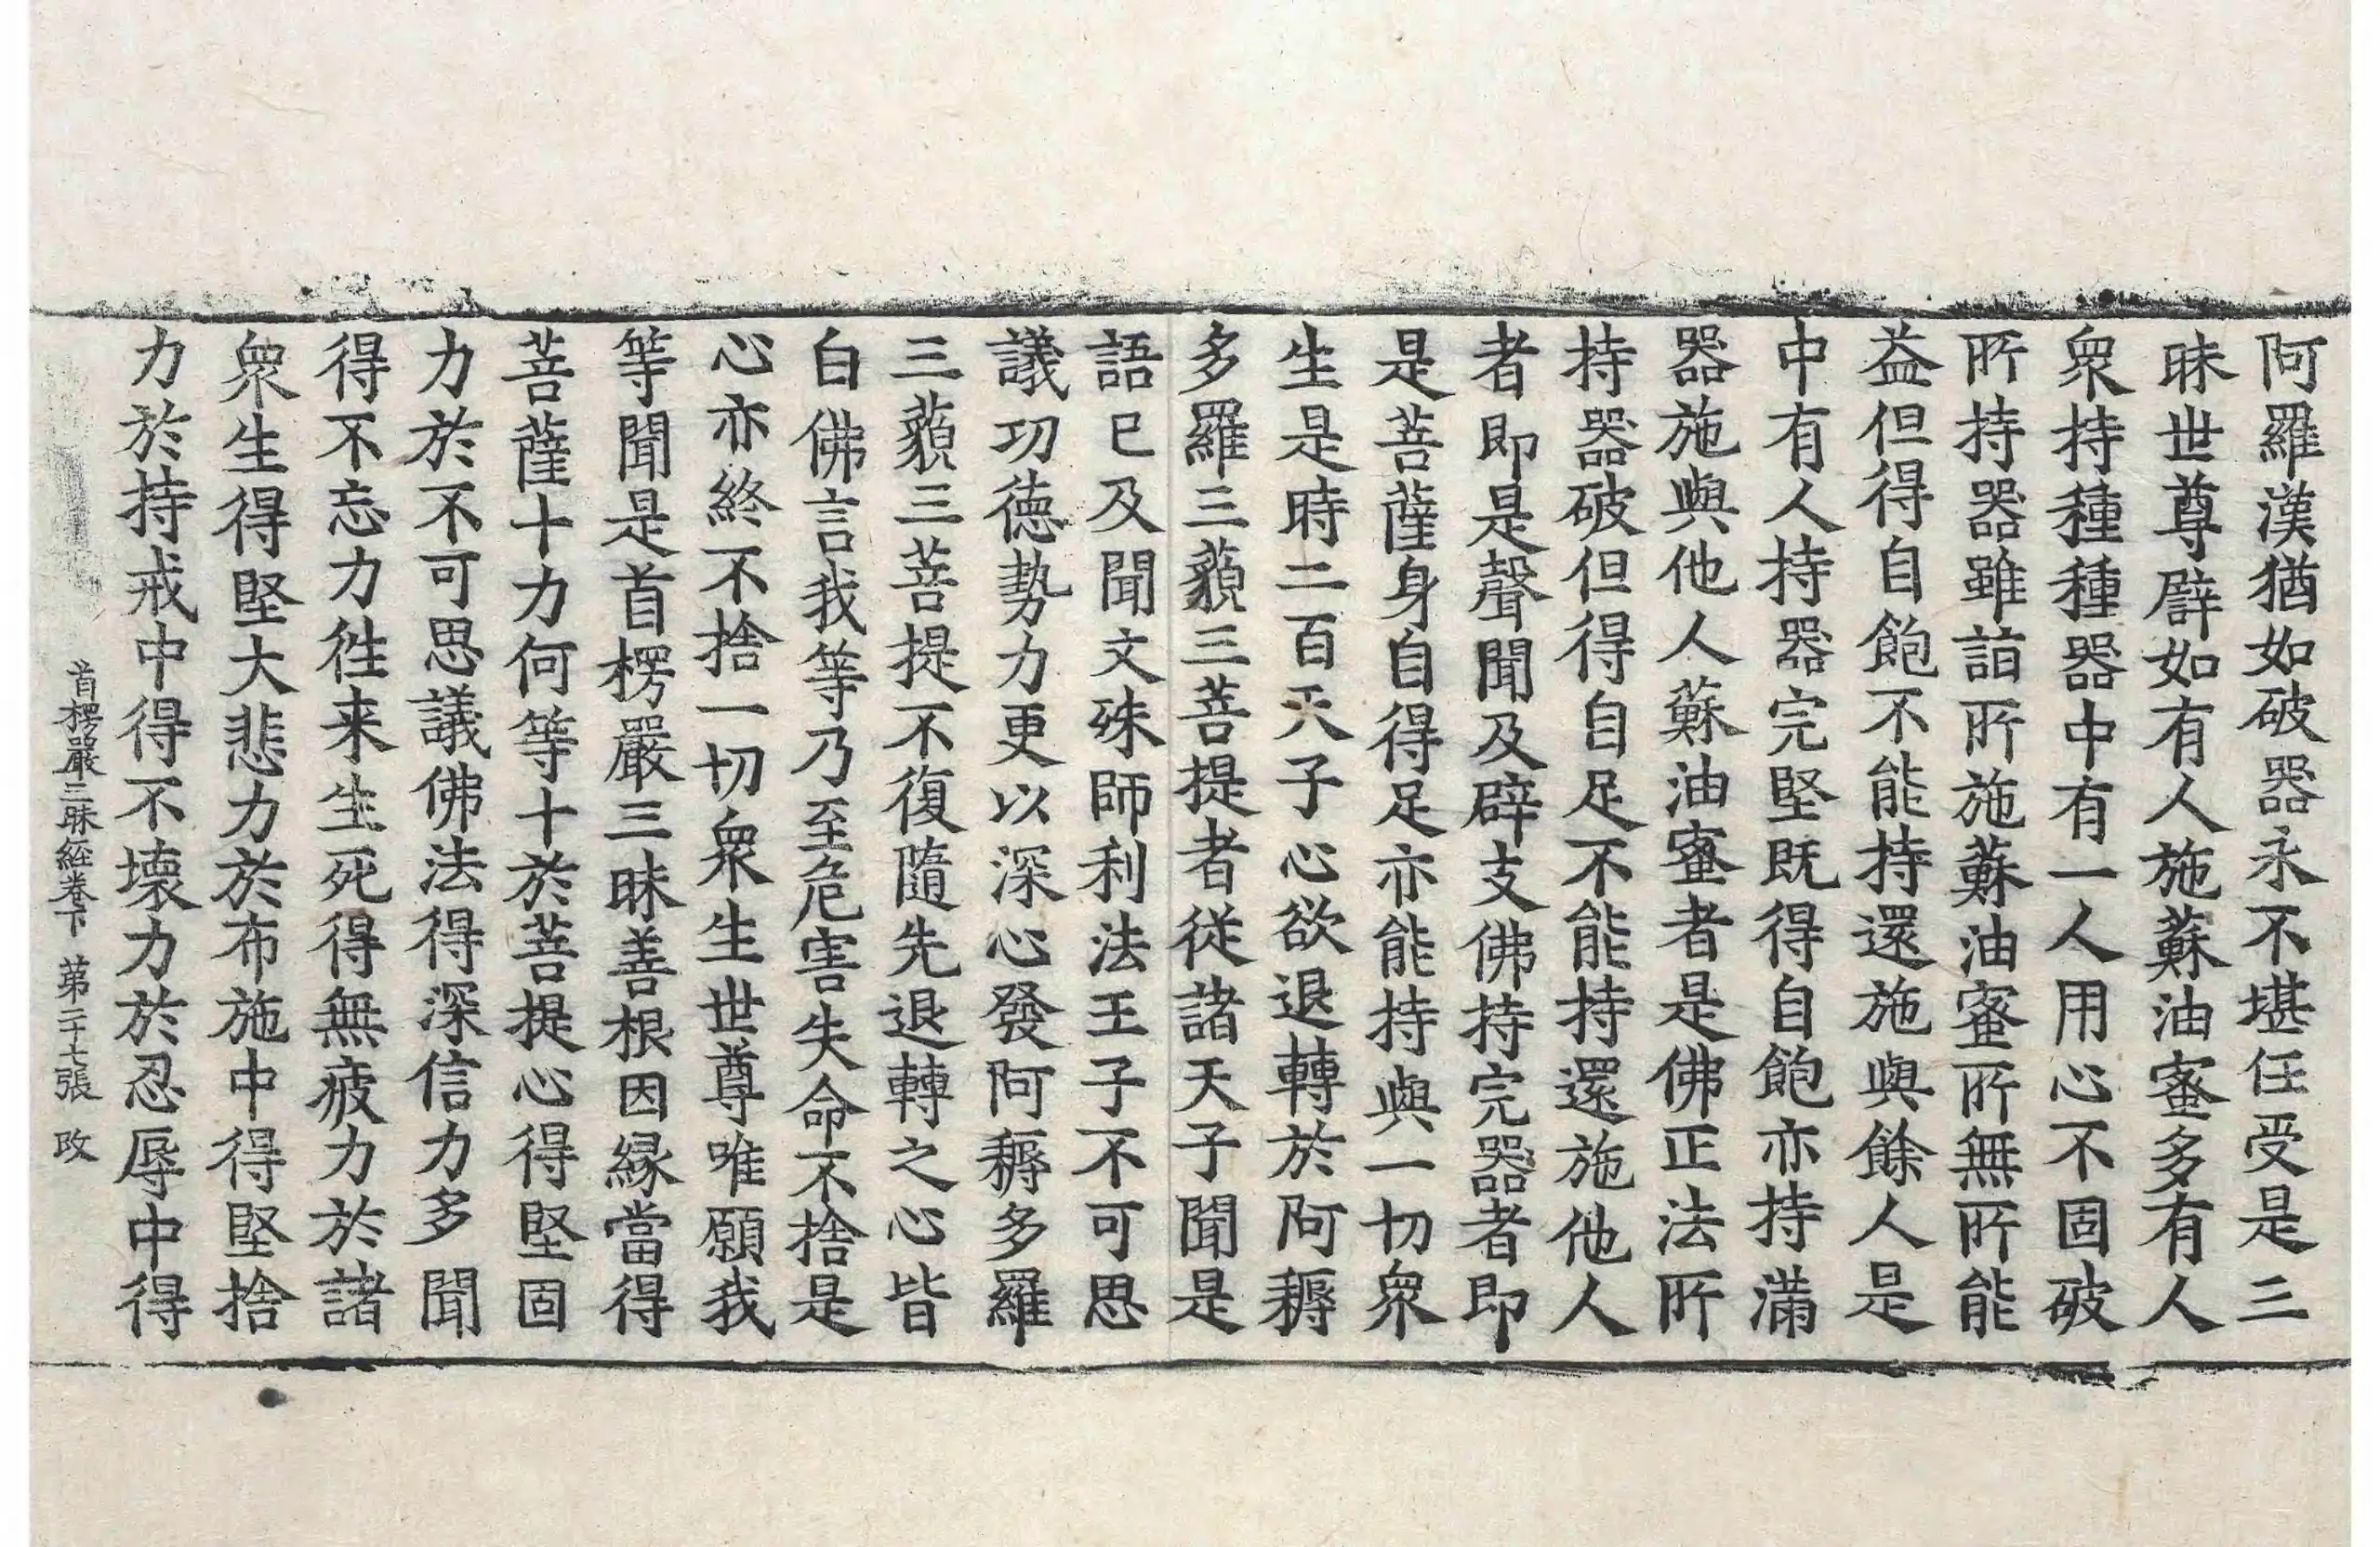 阿羅漢猶如破器永不堪任受是三
昧世尊譬如有人施蘇油蜜多有人
衆持種種器中有一人用心不固破
所持器雖詣所施蘇油蜜所無所能
益但得自飽不能持還施與餘人是
中有人持器完堅既得自飽亦持滿
器施與他人蘇油蜜者是佛正法所
持器破但得自足不能持還施他人
者即是聲聞及辟支佛持完器者即
是菩薩身自得足亦能持與一切衆
生是時二百天子心欲退轉於阿耨
多羅三藐三菩提者從諸天子聞是
語已及聞文殊師利法王子不可思
議功德勢力更以深心發阿耨多羅
三藐三菩提不復隨先退轉之心皆
白佛言我等乃至危害失命不捨是
心亦終不捨一切衆生世尊唯願我
等聞是首楞嚴三昧善根因緣當得
菩薩十力何等十於菩提心得堅固
力於不可思議佛法得深信力多聞
得不忘力徃来生死得無疲力於諸
衆生得堅大悲力於布施中得堅捨
力於持戒中得不壞力於忍辱中得
首楞嚴三昧經卷下 第二十七張 改